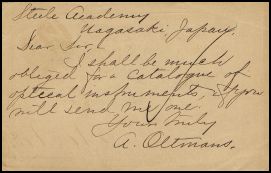 Steele Academy
Nagasaki, Japan.
Dear Sir,
I shall be much
obliged for a Catalogue of
optical instruments, if you
will send me one.
Yours truly
A. Oltmans.